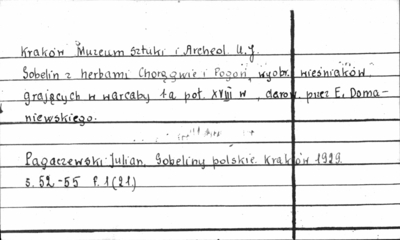 Kraków Muzeum Sztuki i Archeol. U.J.
Gobelin z herbami Chorągwie i Pogoń, wyobr. wieśniaków
grających w warcaby 1-a poł. XVIII w, darow. przez E. Doma-
niewskiego.
Pagaczewski Julian, Gobeliny polskie Kraków 1929.
s. 52-55 f. 1 (21)